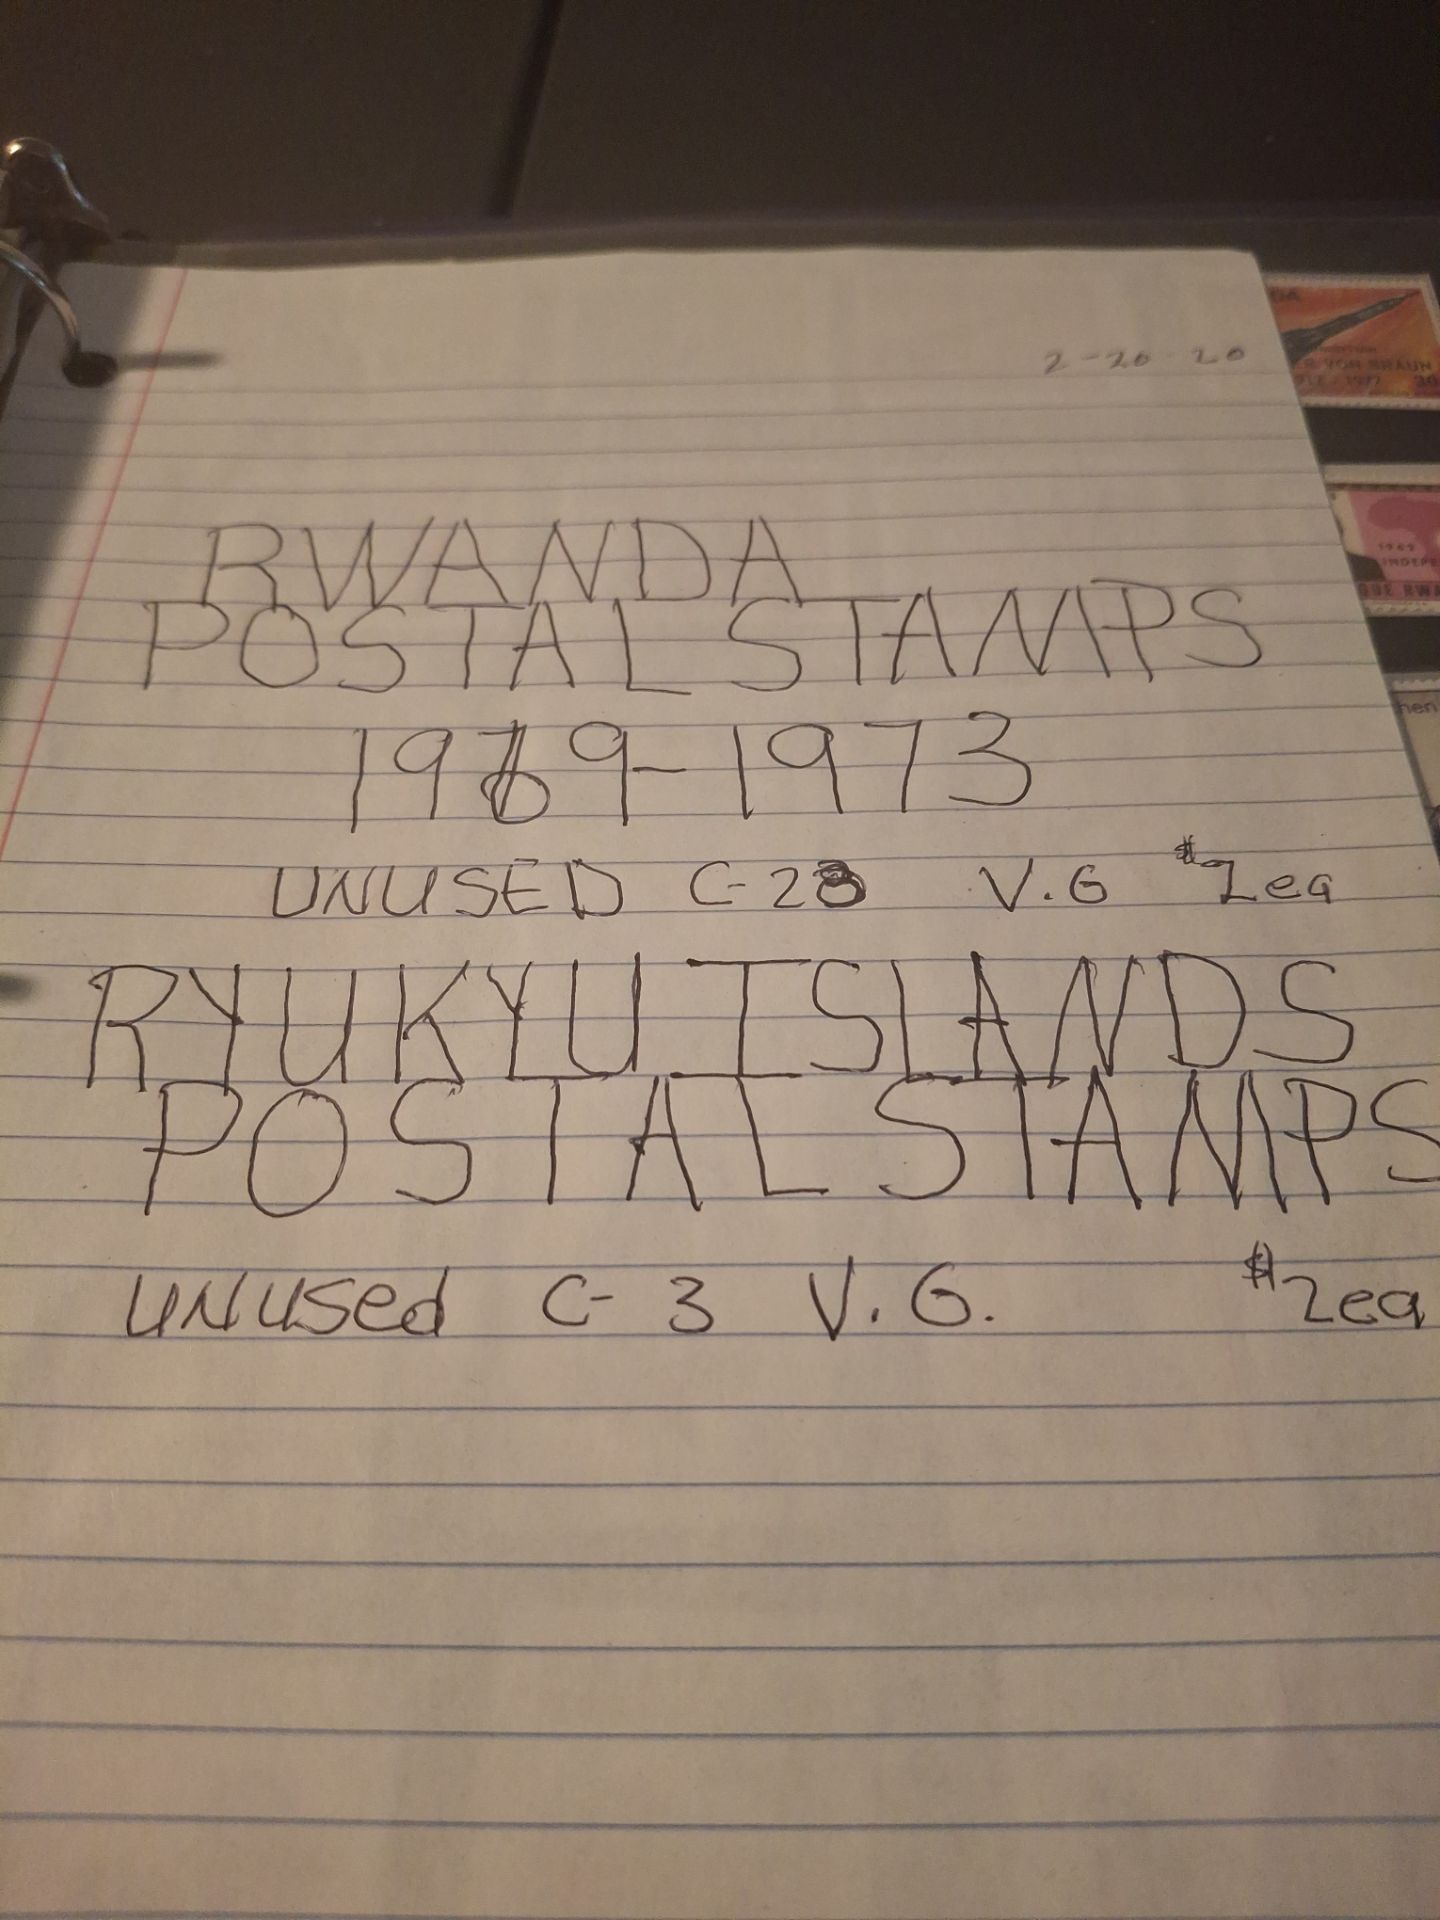 2-20-20
RWANDA
POSTAL STAMPS
1969-1973
UNUSED C-28 V.G $2ea
RYUKYU ISLANDS
POSTAL STAMPS
UNUSED C-3 V.G. $2ea
VON BRAUN
1977
1969
INDEPE
RWA